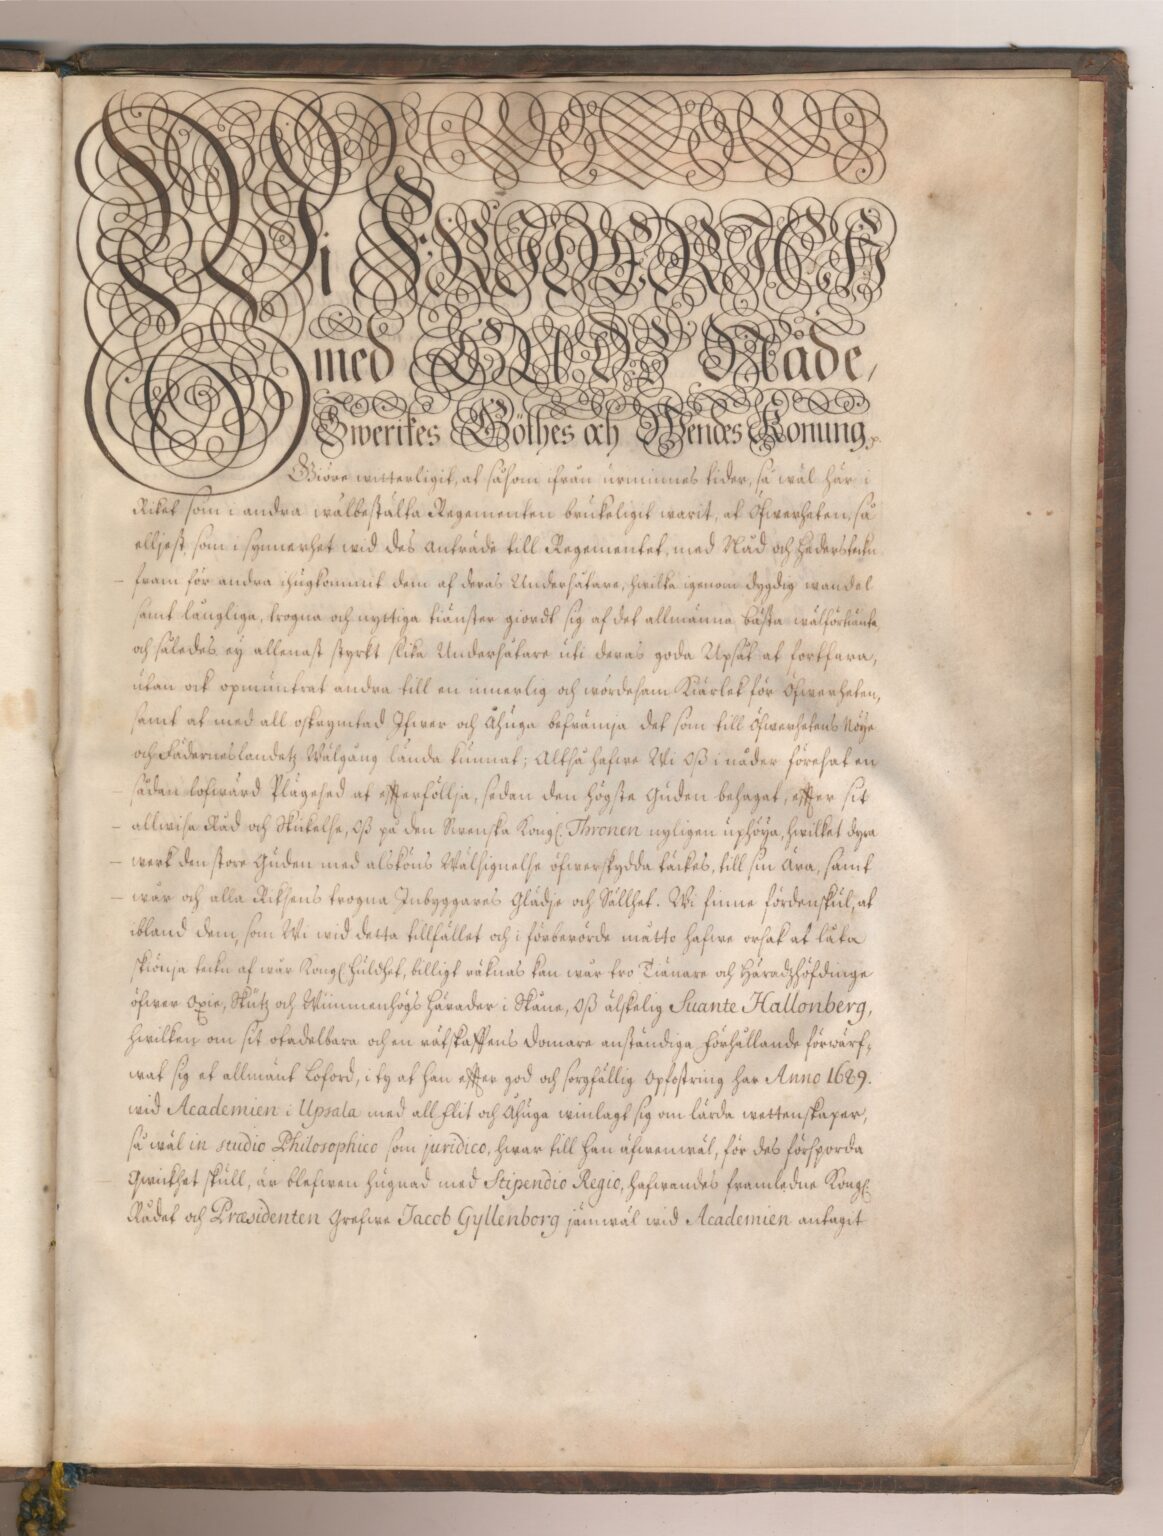 Wi FRIDERICH
med GUDZ Nåde,
Swerikes Göthes och Wendes Konung
Giöre witterligit, at såsom ifrån urminnes tider, så wäl här i
Riket som i andra wälbestälta Regementen brukeligit warit, at Öfwerheten, så
elljest, som i synnerhet wid des anträde till Regementet, med Nåd och Heders teckn
fram för andra ihugkommit dem af deras Undersåtare, hwilka igenom dygdig wandel
samt långliga, trogna och nyttiga tiänster giordt sig af det allmänna bästa wälförtiänte,
och således ey allenast styrkt slika Undersåtare uti deras goda Upsåt at fortfara,
utan ock opmuntrat andra till en innerlig och wördesam Kiärlek för Öfwerheten,
samt at med all oskrymtad Ifwer och Åhuga befrämja det som till Öfwerhetens Nöye
och Fäderneslandetz Wälgång lända kunnat; Altså hafwe Wi Oß i nåder föresat en
sådan lofwärd Plägesed at effterföllja, sedan den högste Guden behagat, effter sit
allwisa Råd och Skickelse, Oß på den Swenska Kongl. Thronen nyligen uphöya, hwilket dyra
werk den store Guden med alskiöns Wälsignelse öfwerskydda täckes, till sin Ära, samt
wår och alla Riksens trogna Inbyggares Glädje och Sällhet. Wi finne fördenskul, at
ibland dem, som Wi wid detta tillfället och i förberörde måtto hafwe orsak at låta
skiönja teckn af wår Kongl. Huldhet, billigt räknas kan wår tro Tiänare och Häradzhöfdinge
öfwer Oxie, Skytz och Wämmenhögs Härader i Skåne, Oß älskelig Suante Hallonberg,
hwilken om sit otadelbara och en rätskaffens Domare anständiga Förhållande förwärf-
wat sig et allmänt Loford, i ty at han effter god och sorgfällig Opfostring har Anno 1689.
wid Academien i Upsala med all Flit och Åhuga winlagt sig om lärda wettenskaper,
så wäl in studio Philosophico som juridico, hwar till han äfwenwäl, för des försporda
Qwickhet skull, är blefwen hugnad med Stipendio Regio, hafwandes framledne Kongl.
Rådet och Præsidenten Grefwe Jacob Gyllenborg jämwäl wid Academien antagit